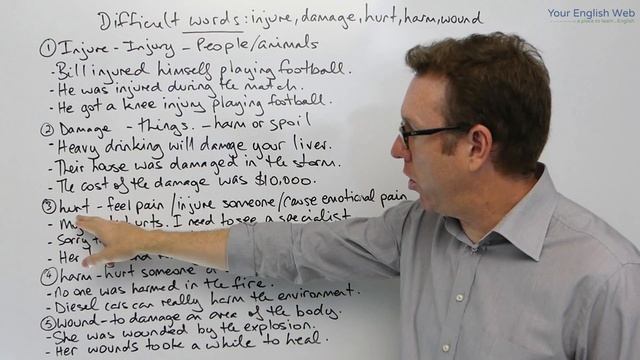 Your English Web
a place to learn English
Difficult words: injure, damage, hurt, harm, wound
① Injure - Injury - People/animals
- Bill injured himself playing football.
- He was injured during the match.
- He got a knee injury playing football.
② Damage - things. - harm or spoil
- Heavy drinking will damage your liver.
- Their house was damaged in the storm.
- The cost of the damage was $10,000.
③ hurt - feel pain / injure someone / cause emotional pain
- My hurts. I need to see a specialist
- Sorry
- Her
④ harm - hurt someone or
- no one was harmed in the fire.
- Diesel cars can really harm the environment.
⑤ wound - to damage an area of the body.
- She was wounded by the explosion.
- Her wounds took a while to heal.